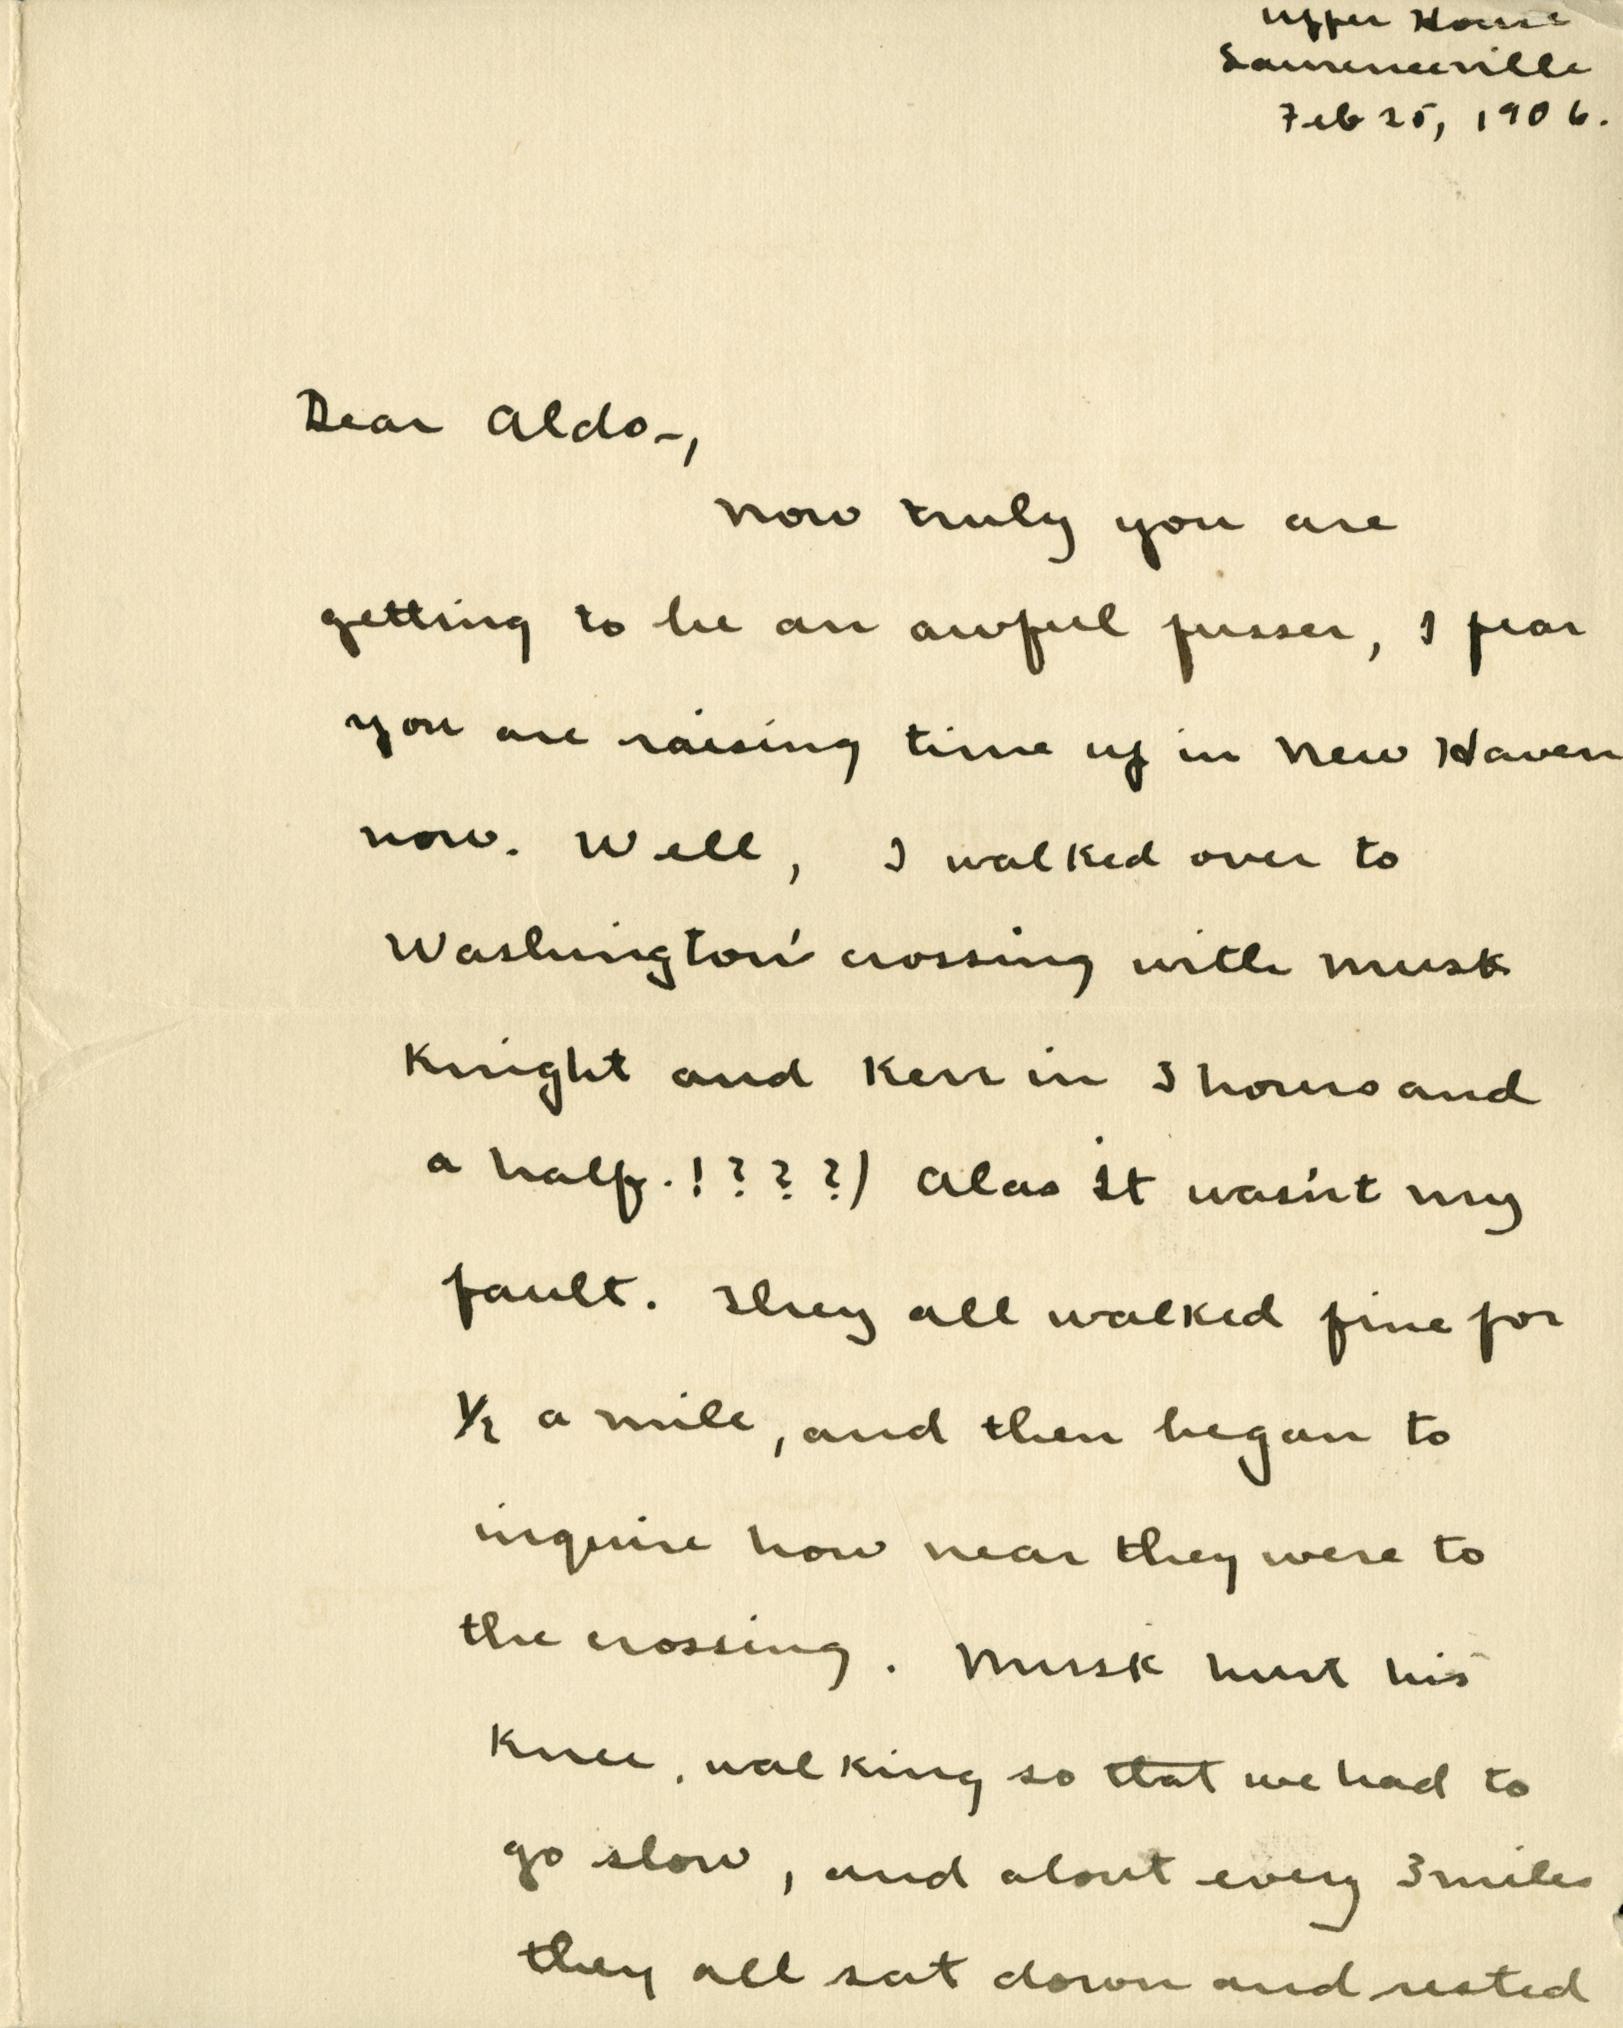 Upper House
Lawrenceville
Feb 25, 1906.
Dear Aldo-,
Now truly you are
getting to be an awful fusser, I fear
you are raising time up in New Haven
now. Well, I walked over to
Washington' crossing with Musk
Knight and Kerr in 3 hours and
a half.!???) Alas it wasn't my
fault. They all walked fine for
1/2 a mile, and then began to
inquire how near they were to
the crossing. Musk hurt his
knee, walking so that we had to
go slow, and about every 3 miles
they all sat down and rested